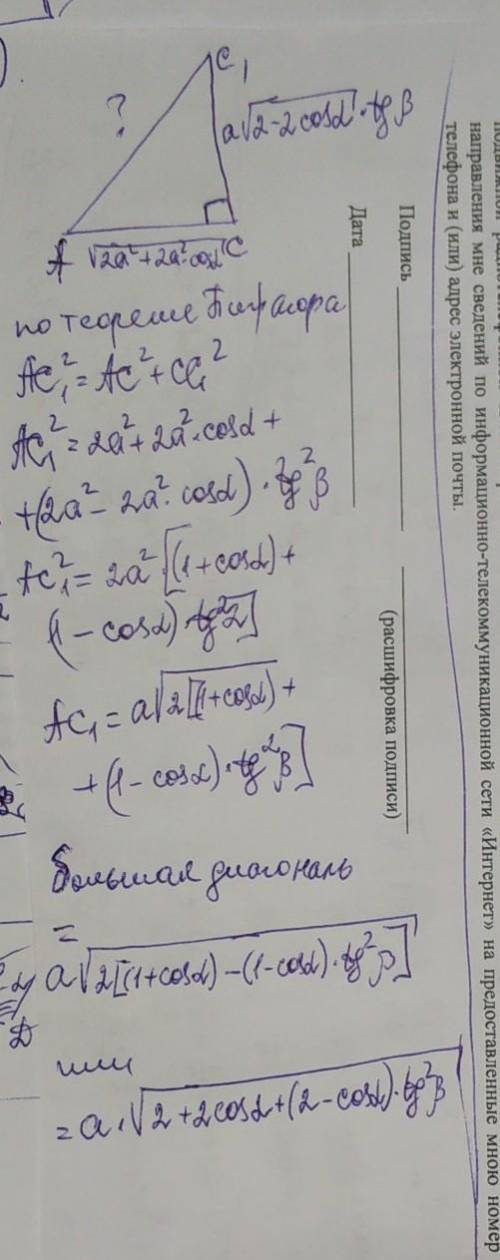 C₁
?
a√(2-2cosα)·tgβ
A √(2a²+2a²·cosα) C
по теореме Пифагора
AC₁² = AC² + CC₁²
AC₁² = 2a² + 2a²·cosα +
+(2a² - 2a²·cosα)·tg²β
AC₁² = 2a²·[(1+cosα)+
(1-cosα)·tg²2]
AC₁ = a√2[(1+cosα)+
+(1-cosα)·tg²β]
Большая диагональ
=
a√2[(1+cosα)-(1-cosα)·tg²β]
или
= a·√2+2cosα+(2-cosα)·tg²β
D
направления мне сведений по информационно-телекоммуникационной сети «Интернет» на предоставленные мною номер
телефона и (или) адрес электронной почты.
Подпись
(расшифровка подписи)
Дата